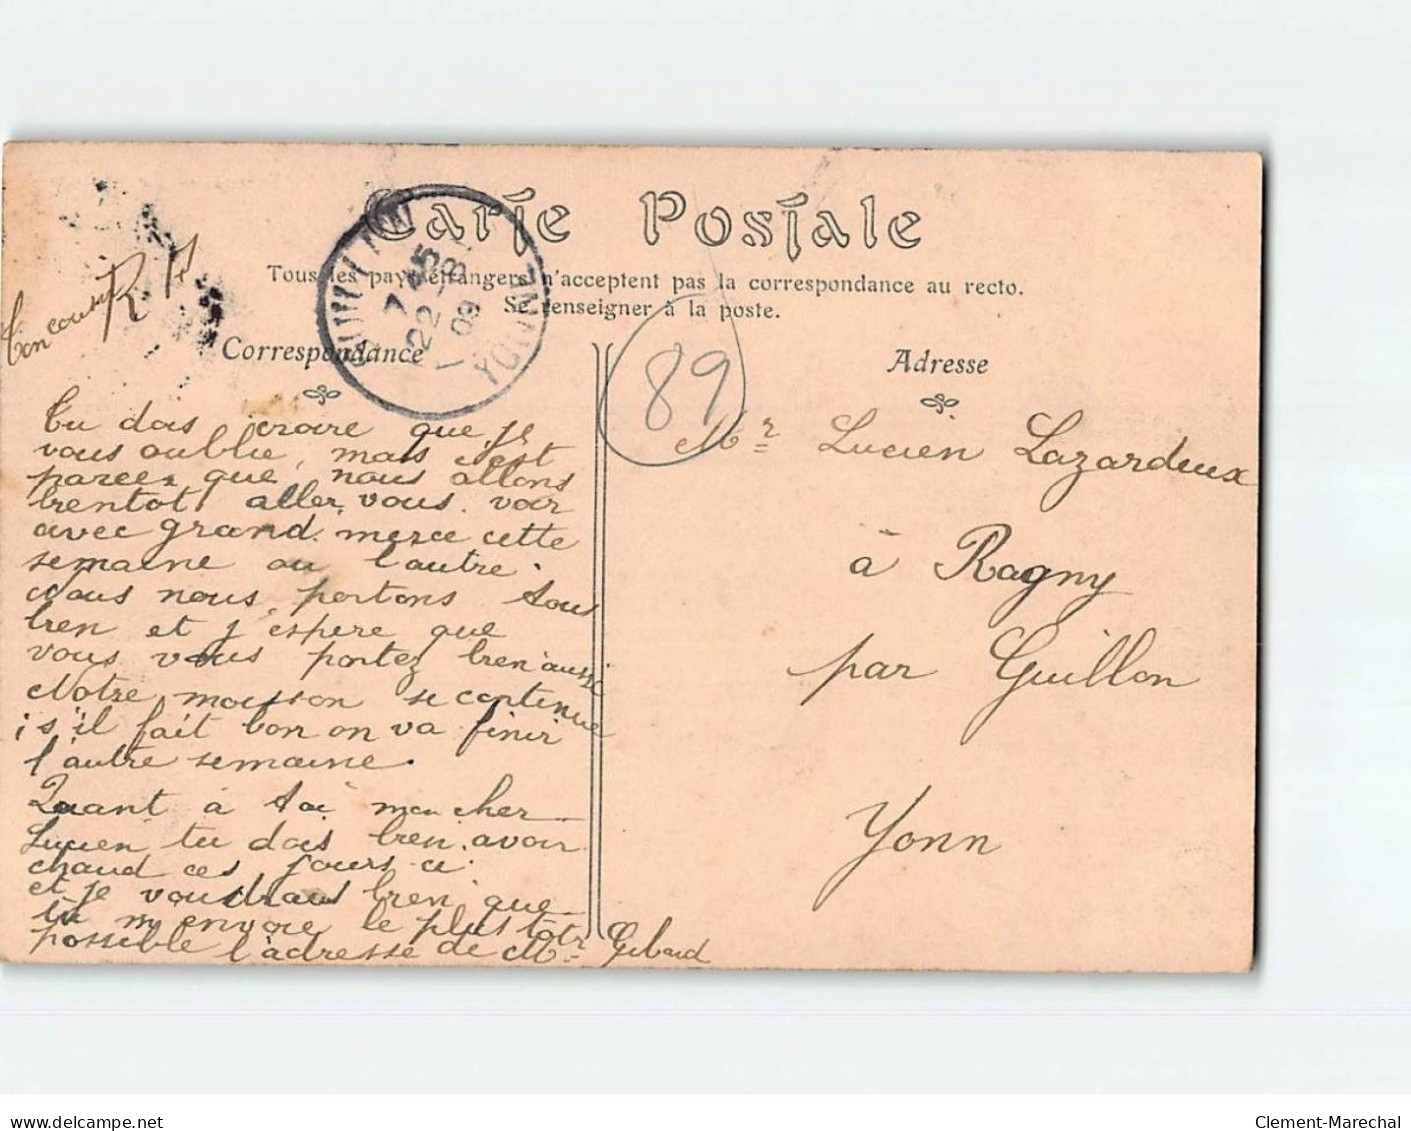 Carte Postale
Tous les pays étrangers n'acceptent pas la correspondance au recto.
Se renseigner à la poste.
Correspondance
Adresse
7 45
22 - 8
09
YONNE
89
Ton cousin R
Tu dois croire que je
vous oublie, mais c'est
parce que nous allons
bientot aller vous voir
avec grand merce cette
semaine ou l'autre.
Nous nous portons tous
bien et j'espère que
vous vous portez bien aussi
Notre moisson se continue
; s'il fait bon on va finir
l'autre semaine.
Quant à toi mon cher
Lucien tu dois bien avoir
chaud ces jours-ci
et je voudrais bien que
tu m'envoie le plus tôt
possible l'adresse de Mr Gibaud
Mr Lucien Lazardeux
à Ragny
par Guillon
Yonn
Clement-Marechal
www.delcampe.net